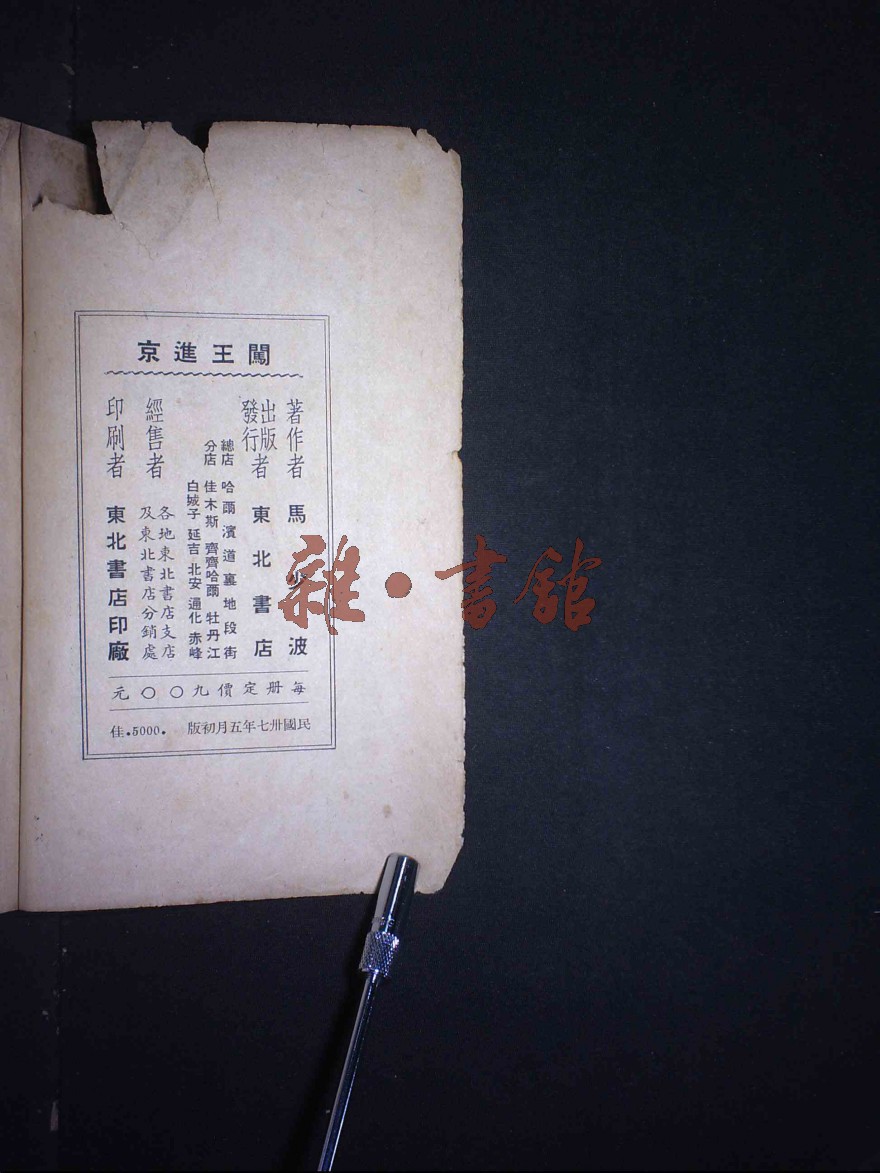 闖王進京
著作者 馬少波
出版
發行者 東北書店
總店 哈爾濱道裏地段街
分店 佳木斯 齊齊哈爾 牡丹江
白城子 延吉 北安 通化 赤峰
經售者 各地東北書店支店
及東北書店分銷處
印刷者 東北書店印廠
每册定價九〇〇元
民國卅七年五月初版 .5000.佳
雜·書館